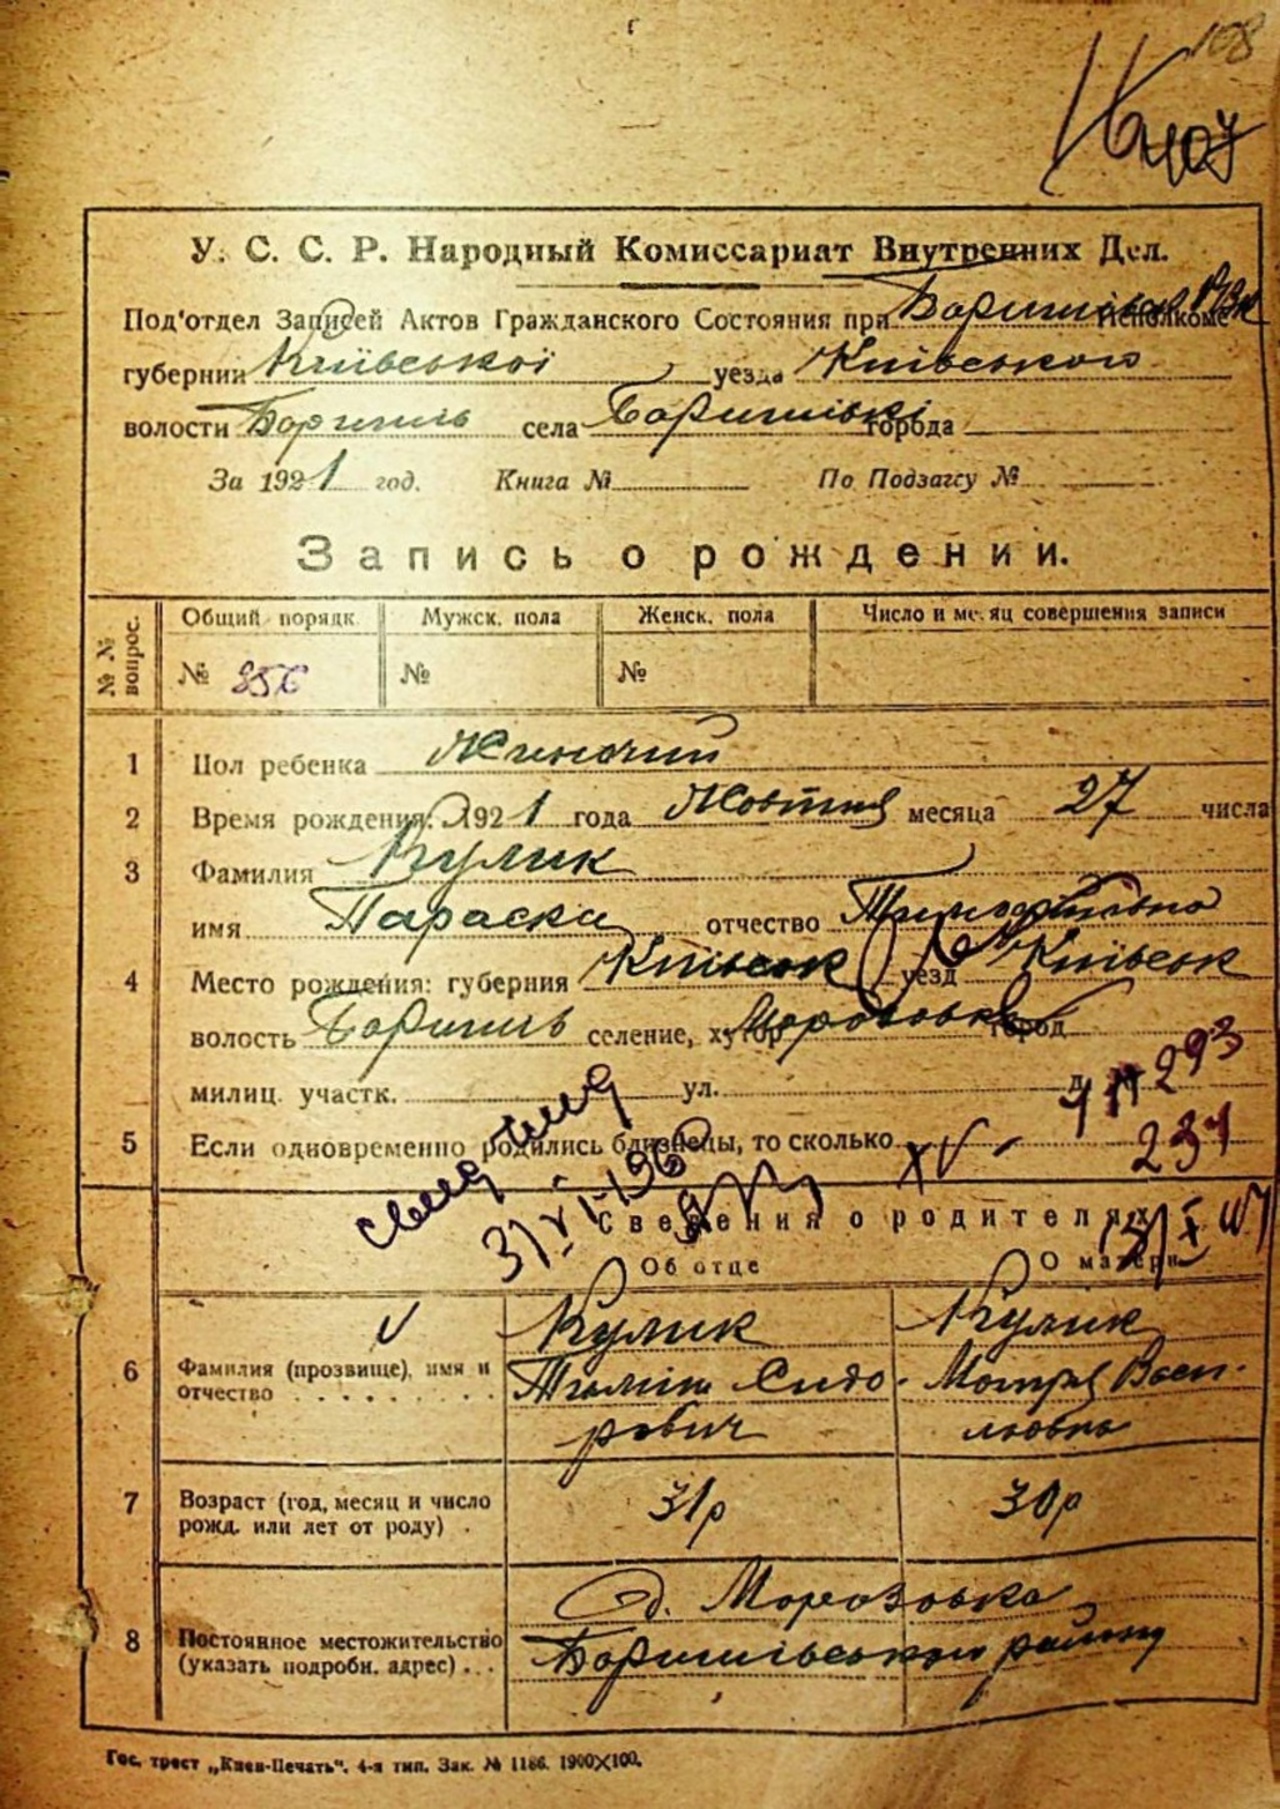 108
407
У. С. С. Р. Народный Комиссариат Внутренних Дел.
Под'отдел Записей Актов Гражданского Состояния при Исполкоме
губернии Київської уезда Київського
волости Бориспіль села города
За 1921 год. Книга № По Подзагсу №
Запись о рождении.
№ № вопрос.
Общий порядк. Мужск. пола Женск. пола Число и месяц совершения записи
№ 856 № №
1 Пол ребенка Жиночий
2 Время рождения: 1921 года Жовтня месяца 27 числа
3 Фамилия Кулик
имя Параска отчество
4 Место рождения: губерния Київськ уезд Київськ
волость Бориспіль селение, хутор Морозовка город
милиц. участк. ул. д. №
293
5 Если одновременно родились близнецы, то сколько
237
Сведения о родителях
Об отце О матери
Кулик Кулик
6 Фамилия (прозвище), имя и отчество Тиміш Сидо- Мотря Васи-
рович льовна
7 Возраст (год, месяц и число рожд. или лет от роду) 31р 30р
8 Постоянное местожительство (указать подробн. адрес) . . . д. Морозовка
Бориспільського району
Гос. трест „Киев-Печать“. 4-я тип. Зак. № 1186. 1900×100.